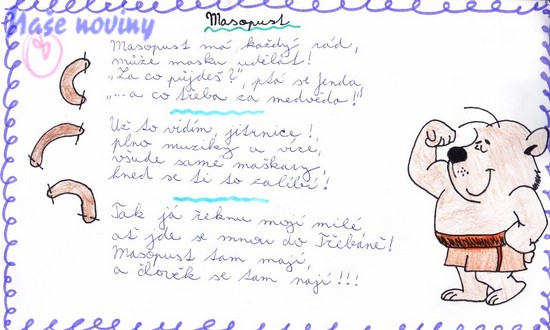 Naše noviny
Masopust
Masopust má každý rád,
může masku udělat!
„Za co půjdeš?", ptá se Jenda
„...a co třeba za medvěda!"
Už to vidím, jitrnice!,
plno muziky a více,
všude samé maškary,
hned se ti to zalíbí!
Tak já řeknu mojí milé,
ať jde se mnou do Třebáně!
Masopust tam mají,
a člověk se tam nají!!!